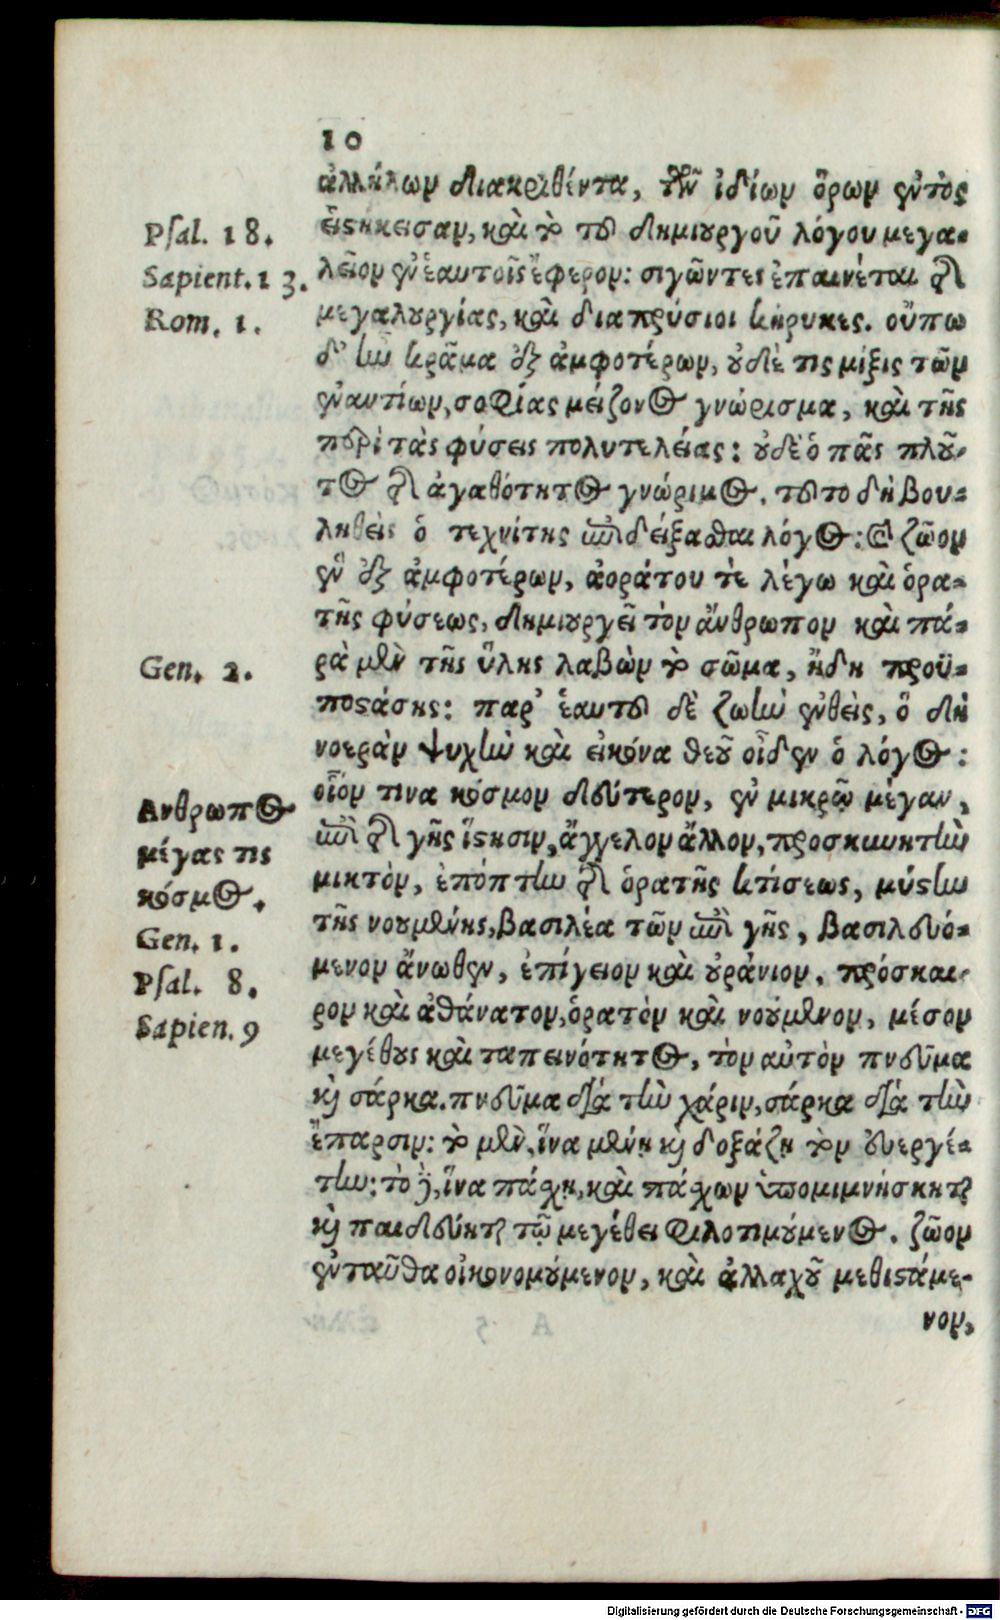 10
ἀλλήλων διακριθέντα, τῶν ἰδίων ὅρων ἐντὸς
Psal. 18.
εἱστήκεισαν, καὶ τὸ τοῦ δημιουργοῦ λόγου μεγα-
Sapient. 13.
λεῖον ἐν ἑαυτοῖς ἔφερον: σιγῶντες ἐπαινέται τῆς
Rom. 1.
μεγαλουργίας, καὶ διαπρύσιοι κήρυκες. οὔπω
δ' ἦν κρᾶμα ἐξ ἀμφοτέρων, οὐδέ τις μίξις τῶν
ἐναντίων, σοφίας μείζονος γνώρισμα, καὶ τῆς
περὶ τὰς φύσεις πολυτελείας: οὐδὲ ὁ πᾶς πλοῦ-
τος τῆς ἀγαθότητος γνώριμος. τοῦτο δὴ βου-
ληθεὶς ὁ τεχνίτης ἐπιδείξασθαι λόγος: καὶ ζῶον
ἓν ἐξ ἀμφοτέρων, ἀοράτου τε λέγω καὶ ὁρα-
τῆς φύσεως, δημιουργεῖ τὸν ἄνθρωπον καὶ πα-
Gen. 2.
ρὰ μὲν τῆς ὕλης λαβὼν τὸ σῶμα, ἤδη προϋ-
ποστάσης: παρ' ἑαυτοῦ δὲ ζωὴν ἐνθεὶς, ὃ δὴ
νοερὰν ψυχὴν καὶ εἰκόνα θεοῦ οἶδεν ὁ λόγος:
οἷόν τινα κόσμον δεύτερον, ἐν μικρῷ μέγαν,
Ανθρωπος
ἐπὶ τῆς γῆς ἵστησιν, ἄγγελον ἄλλον, προσκυνητὴν
μέγας τις
μικτὸν, ἐπόπτην τῆς ὁρατῆς κτίσεως, μύστην
κόσμος.
τῆς νουμένης, βασιλέα τῶν ἐπὶ γῆς, βασιλευό-
Gen. 1.
μενον ἄνωθεν, ἐπίγειον καὶ οὐράνιον, πρόσκαι-
Psal. 8.
ρον καὶ ἀθάνατον, ὁρατὸν καὶ νούμενον, μέσον
Sapien. 9
μεγέθους καὶ ταπεινότητος, τὸν αὐτὸν πνεῦμα
καὶ σάρκα. πνεῦμα διὰ τὴν χάριν, σάρκα διὰ τὴν
ἔπαρσιν: τὸ μὲν, ἵνα μένῃ καὶ δοξάζῃ τὸν εὐεργέ-
την: τὸ δὲ, ἵνα πάσχῃ, καὶ πάσχων ὑπομιμνήσκηται
καὶ παιδεύηται τῷ μεγέθει φιλοτιμούμενος. ζῶον
ἐνταῦθα οἰκονομούμενον, καὶ ἀλλαχοῦ μεθιστάμε-
νον,
Digitalisierung gefördert durch die Deutsche Forschungsgemeinschaft - DFG